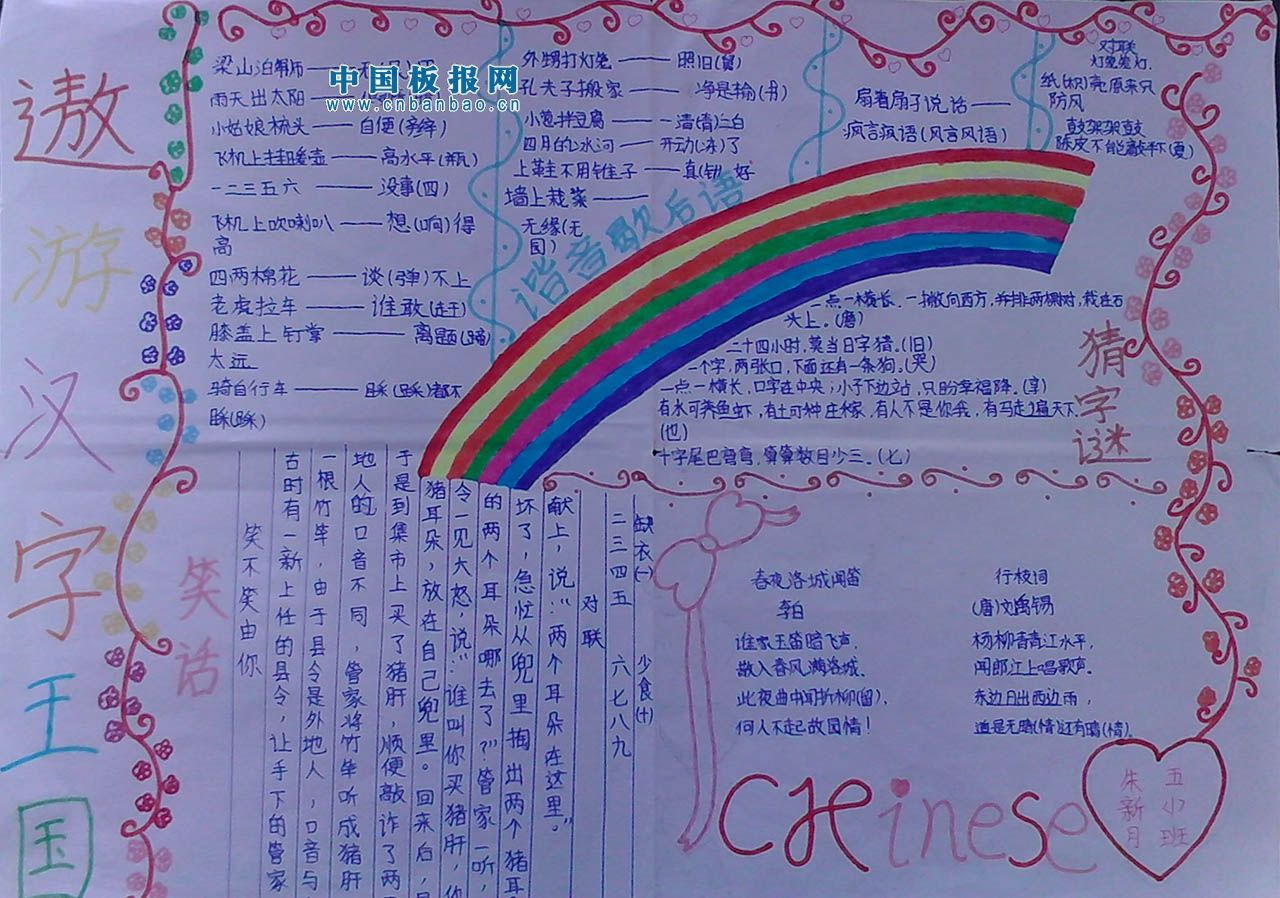 遨
游
汉
字
王
国
中国板报网
www.cnbanbao.cn
梁山泊军师——
雨天出太阳——
小姑娘梳头——自便(辫)
飞机上挂暖壶——高水平(瓶)
一二三五六——没事(四)
飞机上吹喇叭——想(响)得
高
四两棉花——谈(弹)不上
老虎拉车——谁敢(赶)
膝盖上钉掌——离题(蹄)
太远
骑自行车——
外甥打灯笼——照旧(舅)
孔夫子搬家——净是输(书)
小葱拌豆腐——一清(青)二白
四月的冰河——开动(冻)了
上鞋不用锥子——真(针)好
墙上栽菜——
无缘(无
园)
扇着扇子说话——
疯言疯语(风言风语)
对联
灯笼笼灯,
纸(枳)壳原来只
防风
鼓架架鼓
陈皮不能敲半下(夏)
谐音歇后语
一点一横长,一撇向西方,并排两棵树,栽在石
头上。(磨)
二十四小时,莫当日字猜。(旧)
一个字,两张口,下面还有一条狗。(哭)
一点一横长,口字在中央;小子下边立站,只盼幸福降。(享)
有水可养鱼虾,有土可种庄稼,有人不是你我,有马走遍天下
(也)
十字尾巴弯弯,算算数目少三。(七)
猜
字
谜
笑
话
笑不笑由你
古时有一新上任的县令,让手下的管家
一根竹竿,由于县令是外地人,口音与
地人的口音不同,管家将竹竿听成猪肝
于是到集市上买了猪肝,顺便敲诈了两
猪耳朵,放在自己兜里。回来后,
令一见大怒,说:“谁叫你买猪肝,你
的两个耳朵哪去了?”管家一听,
坏了,急忙从兜里掏出两个猪耳
献上,说:“两个耳朵在这里。”
对联
二三四五 六七八九
缺衣(一) 少食(十)
春夜洛城闻笛
李白
谁家玉笛暗飞声,
散入春风满洛城.
此夜曲中闻折柳(留),
何人不起故园情!
竹枝词
(唐)刘禹锡
杨柳青青江水平,
闻郎江上唱歌声.
东边日出西边雨,
道是无晴(情)还有晴(情).
CHinese
五小班
朱新月